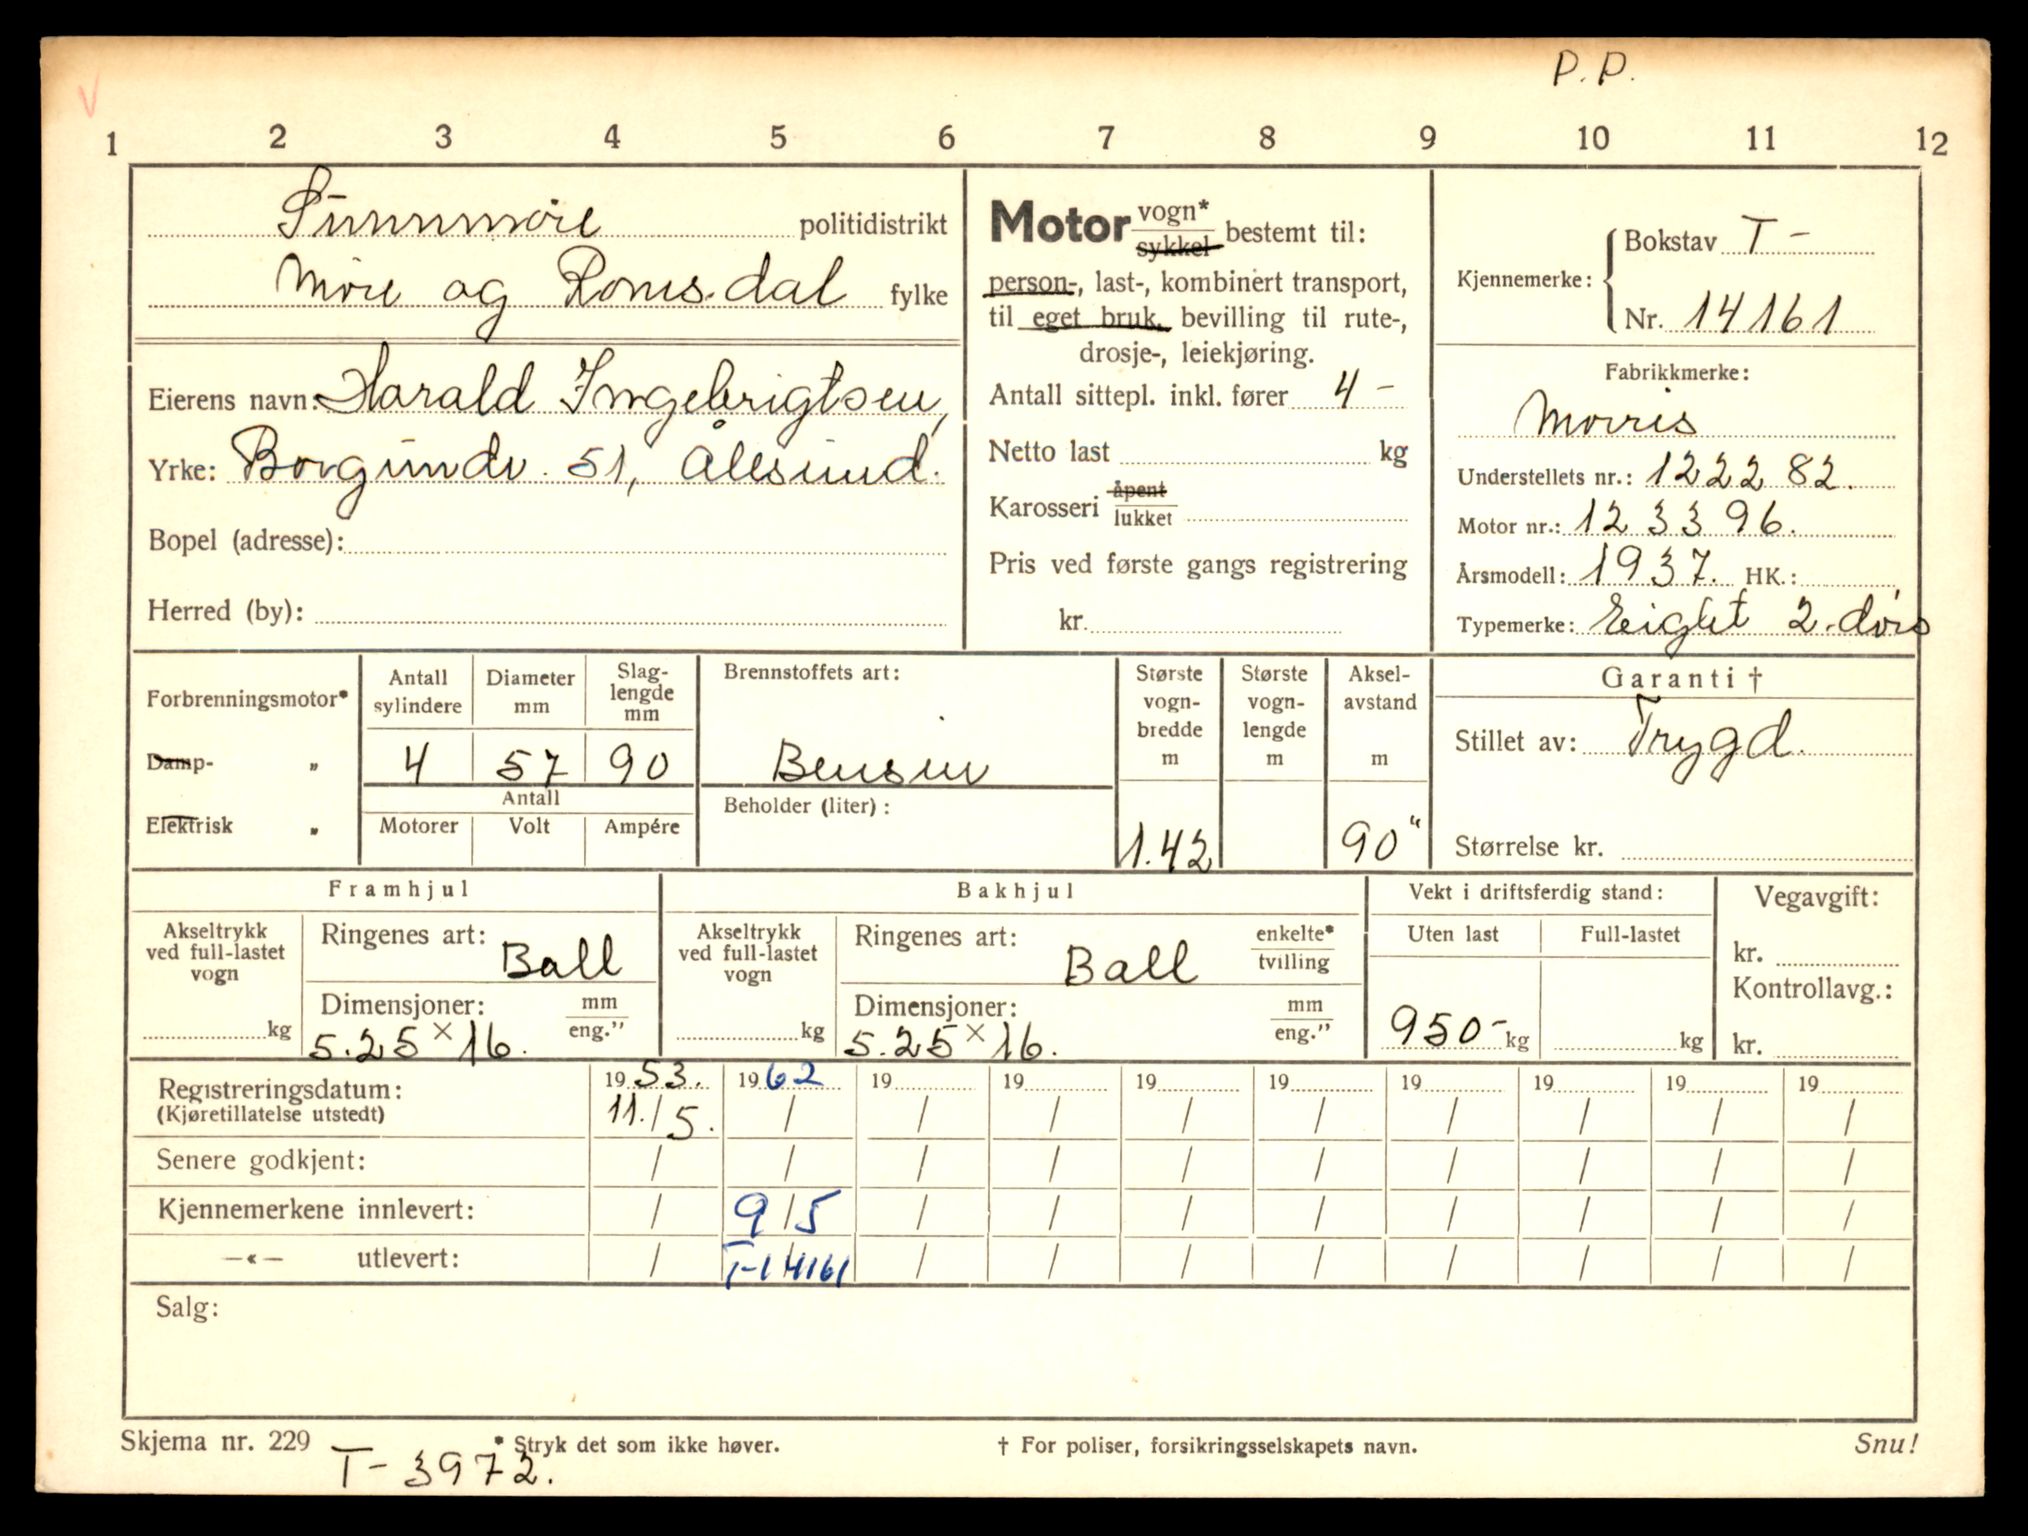 P.P.
V
1 2 3 4 5 6 7 8 9 10 11 12
Sunnmøre politidistrikt
Møre og Romsdal fylke
Eierens navn: Harald Ingebrigtsen,
Yrke: Borgundv. 51, Ålesund.
Bopel (adresse):
Herred (by):
Motor vogn* sykkel bestemt til:
person-, last-, kombinert transport,
til eget bruk, bevilling til rute-,
drosje-, leiekjøring.
Antall sittepl. inkl. fører 4 -
Netto last kg
Karosseri åpent lukket
Pris ved første gangs registrering
kr.
Kjennemerke: Bokstav T -
Nr. 14161
Fabrikkmerke:
Morris
Understellets nr.: 122282.
Motor nr.: 123396.
Årsmodell: 1937. HK.:
Typemerke: Eight 2. dørs
Forbrenningsmotor*
Damp- „
Elektrisk „
Antall sylindere
4
Diameter mm
57
Slag-lengde mm
90
Antall
Motorer Volt Ampére
Brennstoffets art:
Bensin
Beholder (liter):
Største vogn-bredde m
1.42
Største vogn-lengde m
Aksel-avstand m
90"
Garanti †
Stillet av: Trygd.
Størrelse kr.
Framhjul
Akseltrykk
ved full-lastet
vogn
kg
Ringenes art:
Ball
Dimensjoner: mm eng."
5.25 × 16.
Bakhjul
Akseltrykk
ved full-lastet
vogn
kg
Ringenes art: enkelte* tvilling
Ball
Dimensjoner: mm eng."
5.25 × 16.
Vekt i driftsferdig stand:
Uten last Full-lastet
950- kg kg
Vegavgift:
kr.
Kontrollavg.:
kr.
Registreringsdatum: 1953. 1962 19 19 19 19 19 19 19 19
(Kjøretillatelse utstedt) 11./5. / / / / / / / / /
Senere godkjent: / / / / / / / / / /
Kjennemerkene innlevert: / 9/5 / / / / / / / /
—«— utlevert: / T-14161 / / / / / / / /
Salg:
Skjema nr. 229 * Stryk det som ikke høver. † For poliser, forsikringsselskapets navn. Snu!
T- 3972.